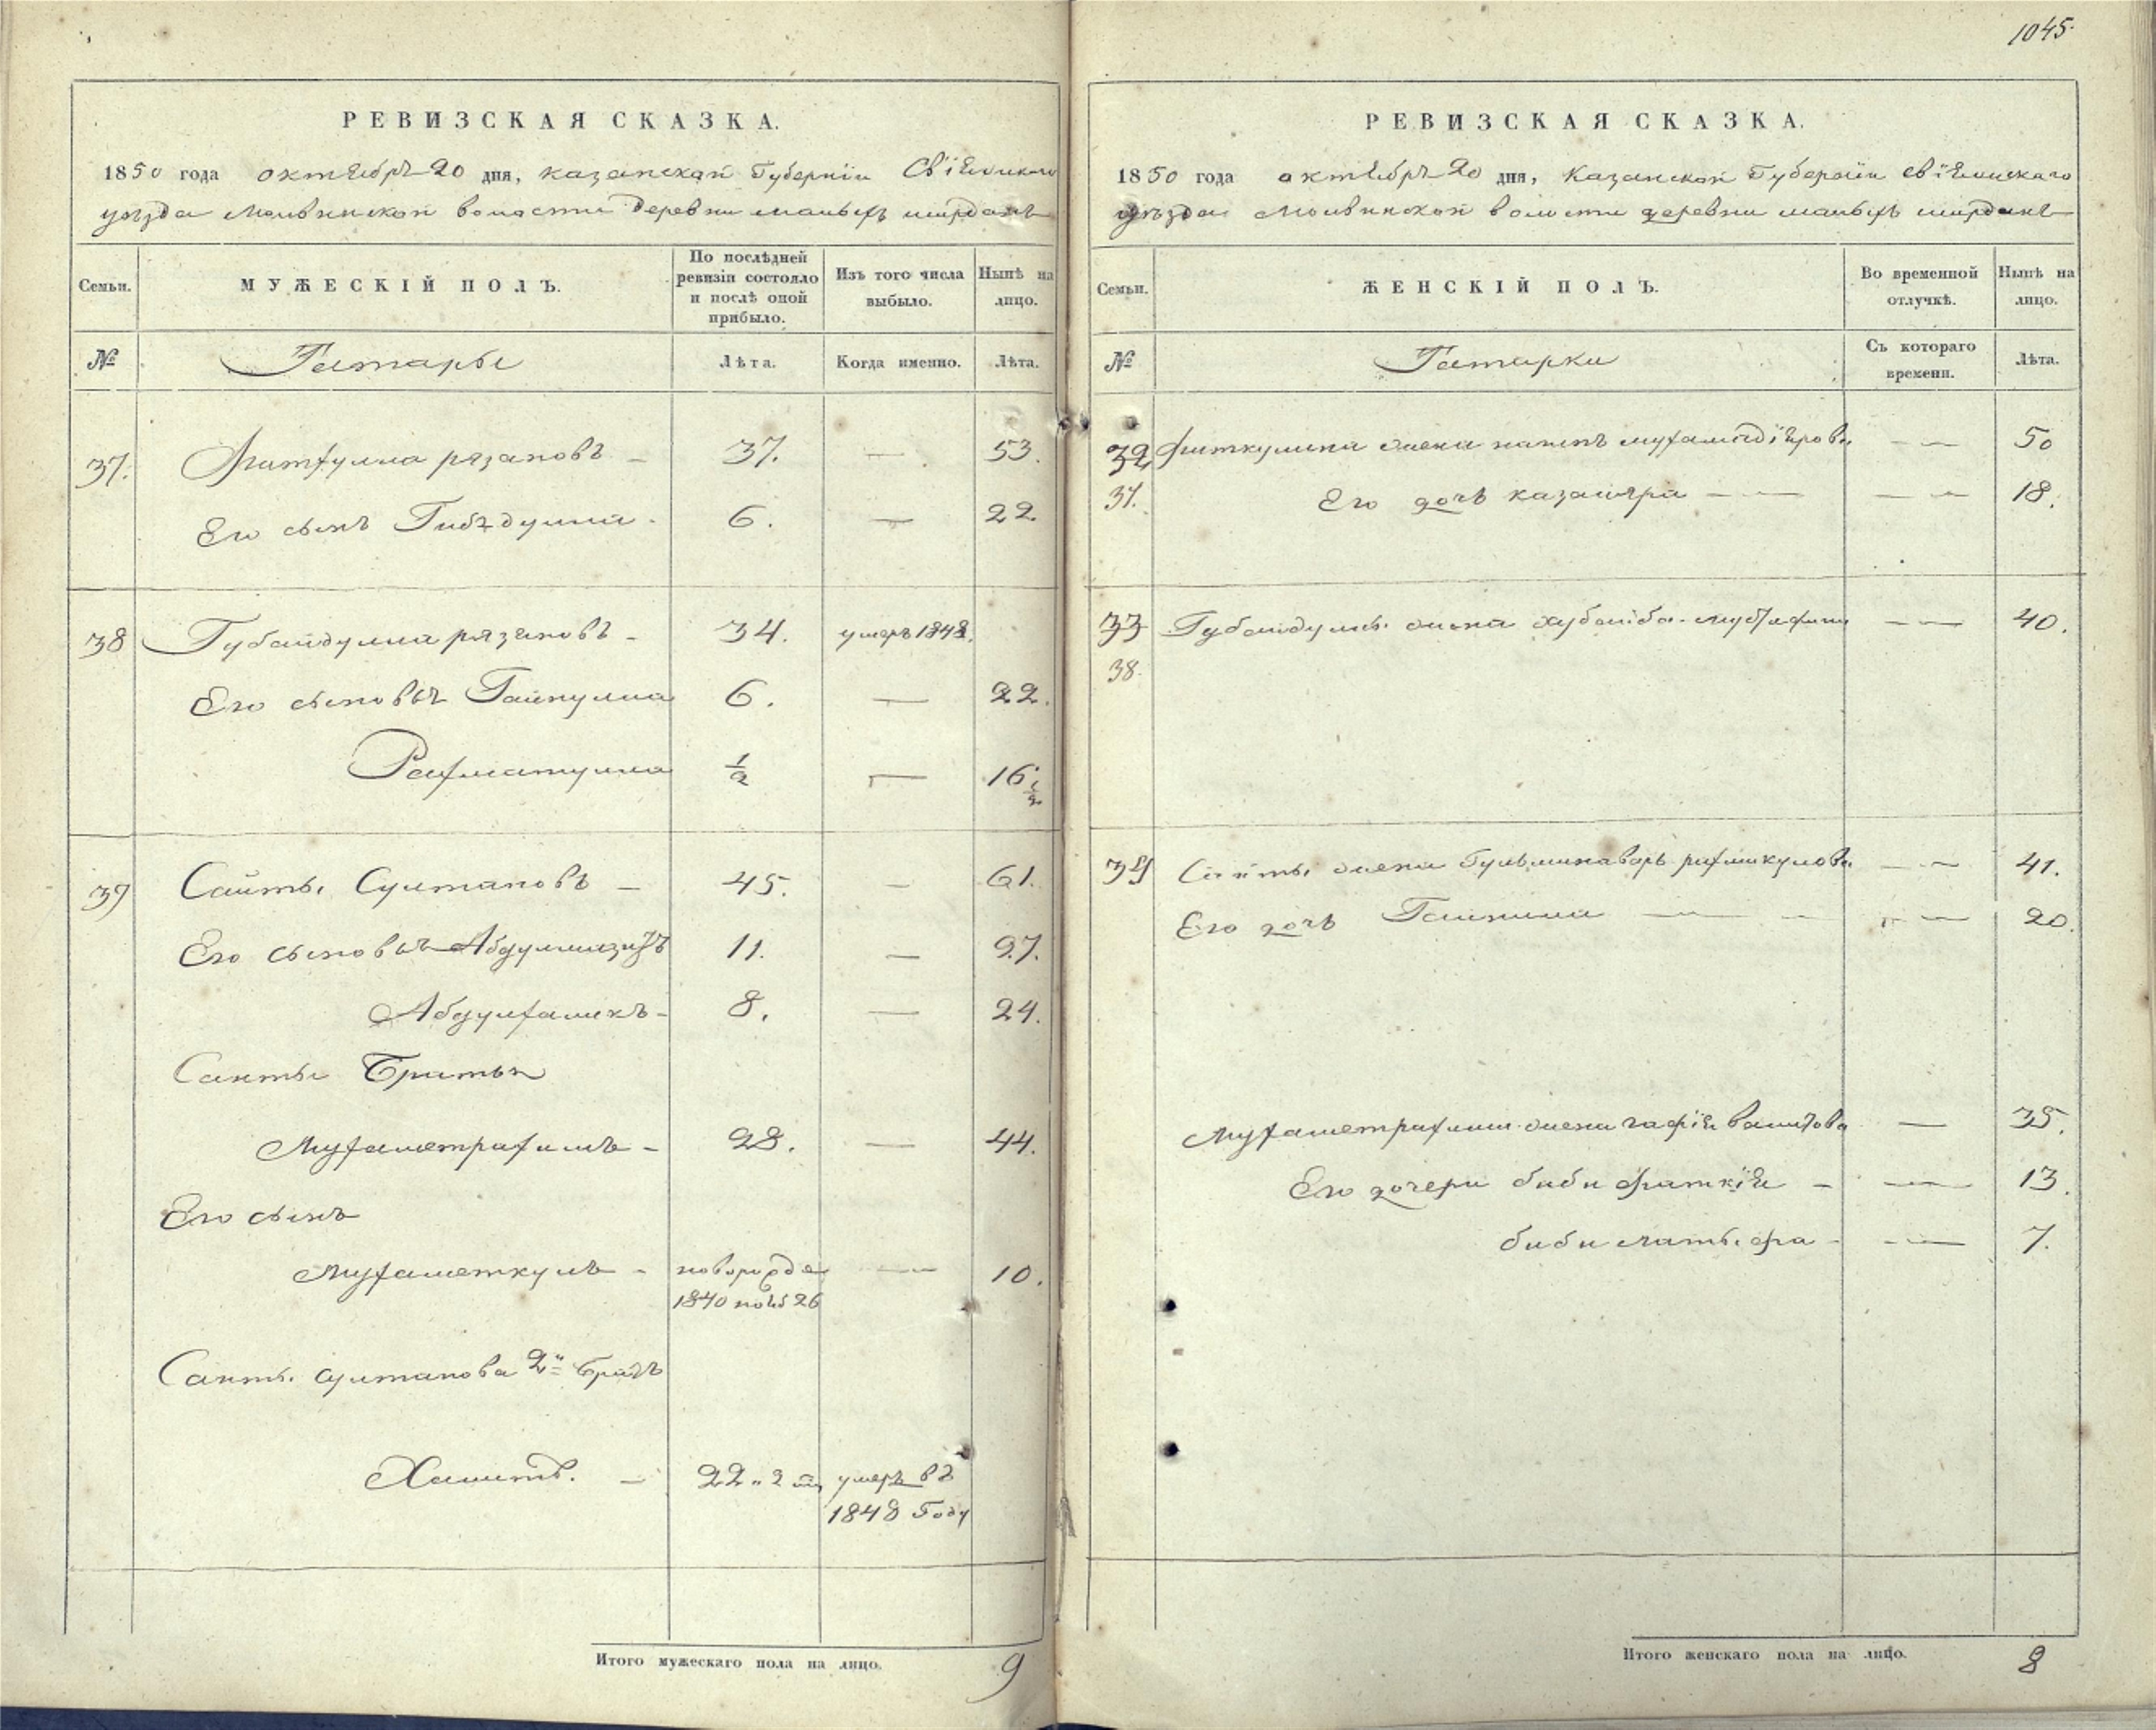 1045.
РЕВИЗСКАЯ СКАЗКА.
1850 года октября 20 дня, казанской Губернiи Свiяжскаго
уѣзда Молвинской волости деревни малыхъ ширданъ
Семьи. МУЖЕСКІЙ ПОЛЪ. По послѣдней ревизіи состояло и послѣ оной прибыло. Изъ того числа выбыло. Нынѣ на лицо.
№ Татары Лѣта. Когда именно. Лѣта.
37. Фатхулла рязаповъ 37. — 53.
Его сынъ Гибядулла 6. — 22
38 Губайдулла рязяповъ 34. умеръ 1848.
Его сыновья Гайнулла 6. — 22.
Рахматулла 1/2 — 16 1/2
39 Саиты Султановъ 45. — 61.
Его сыновья 11. — 27.
8. — 24.
Саиты Братья
Мухаметрахимъ 28. — 44.
Его сынъ
Мухаметкулъ новорожде — 10.
1840 нояб 26
Саиты султанова 2й братъ
Хамитъ. 22 умеръ въ
1848 году
Итого мужескаго пола на лицо. 9
РЕВИЗСКАЯ СКАЗКА.
1850 года октября 20 дня, Казанской Губернiи свiяжскаго
уѣзда Молвинской волости деревни малыхъ ширданъ
Семьи. ЖЕНСКІЙ ПОЛЪ. Во временной отлучкѣ. Нынѣ на лицо.
№ Татарки Съ котораго времени. Лѣта.
32 жена — 50
37. Его дочь — 18.
33 Губайдуллы жена хубайба — 40.
38.
39 Саиты жена рахманкулова — 41.
Его дочь — 20.
Мухаметрахима жена валитова — 35.
Его дочери биби — 13.
биби латыфа — 7.
Итого женскаго пола на лицо. 8